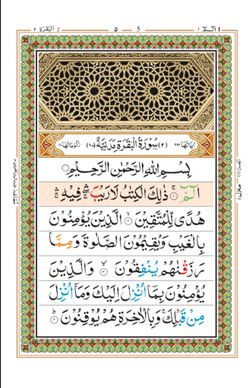 الٓمّٓ ١
٥
5
البقرة ٢
(٢) سُوْرَةُ الْبَقَرَةِ مَدَنِيَّةٌ
بِسْمِ اللّٰهِ الرَّحْمٰنِ الرَّحِيْمِ
الٓمّٓ ۚ ذٰلِكَ الْكِتٰبُ لَا رَيْبَ ۛ فِيْهِ ۛ
هُدًى لِّلْمُتَّقِيْنَ الَّذِيْنَ يُؤْمِنُوْنَ
بِالْغَيْبِ وَيُقِيْمُوْنَ الصَّلٰوةَ وَمِمَّا
رَزَقْنٰهُمْ يُنْفِقُوْنَ وَالَّذِيْنَ
يُؤْمِنُوْنَ بِمَآ اُنْزِلَ اِلَيْكَ وَمَآ اُنْزِلَ
مِنْ قَبْلِكَ وَبِالْاٰخِرَةِ هُمْ يُوْقِنُوْنَ